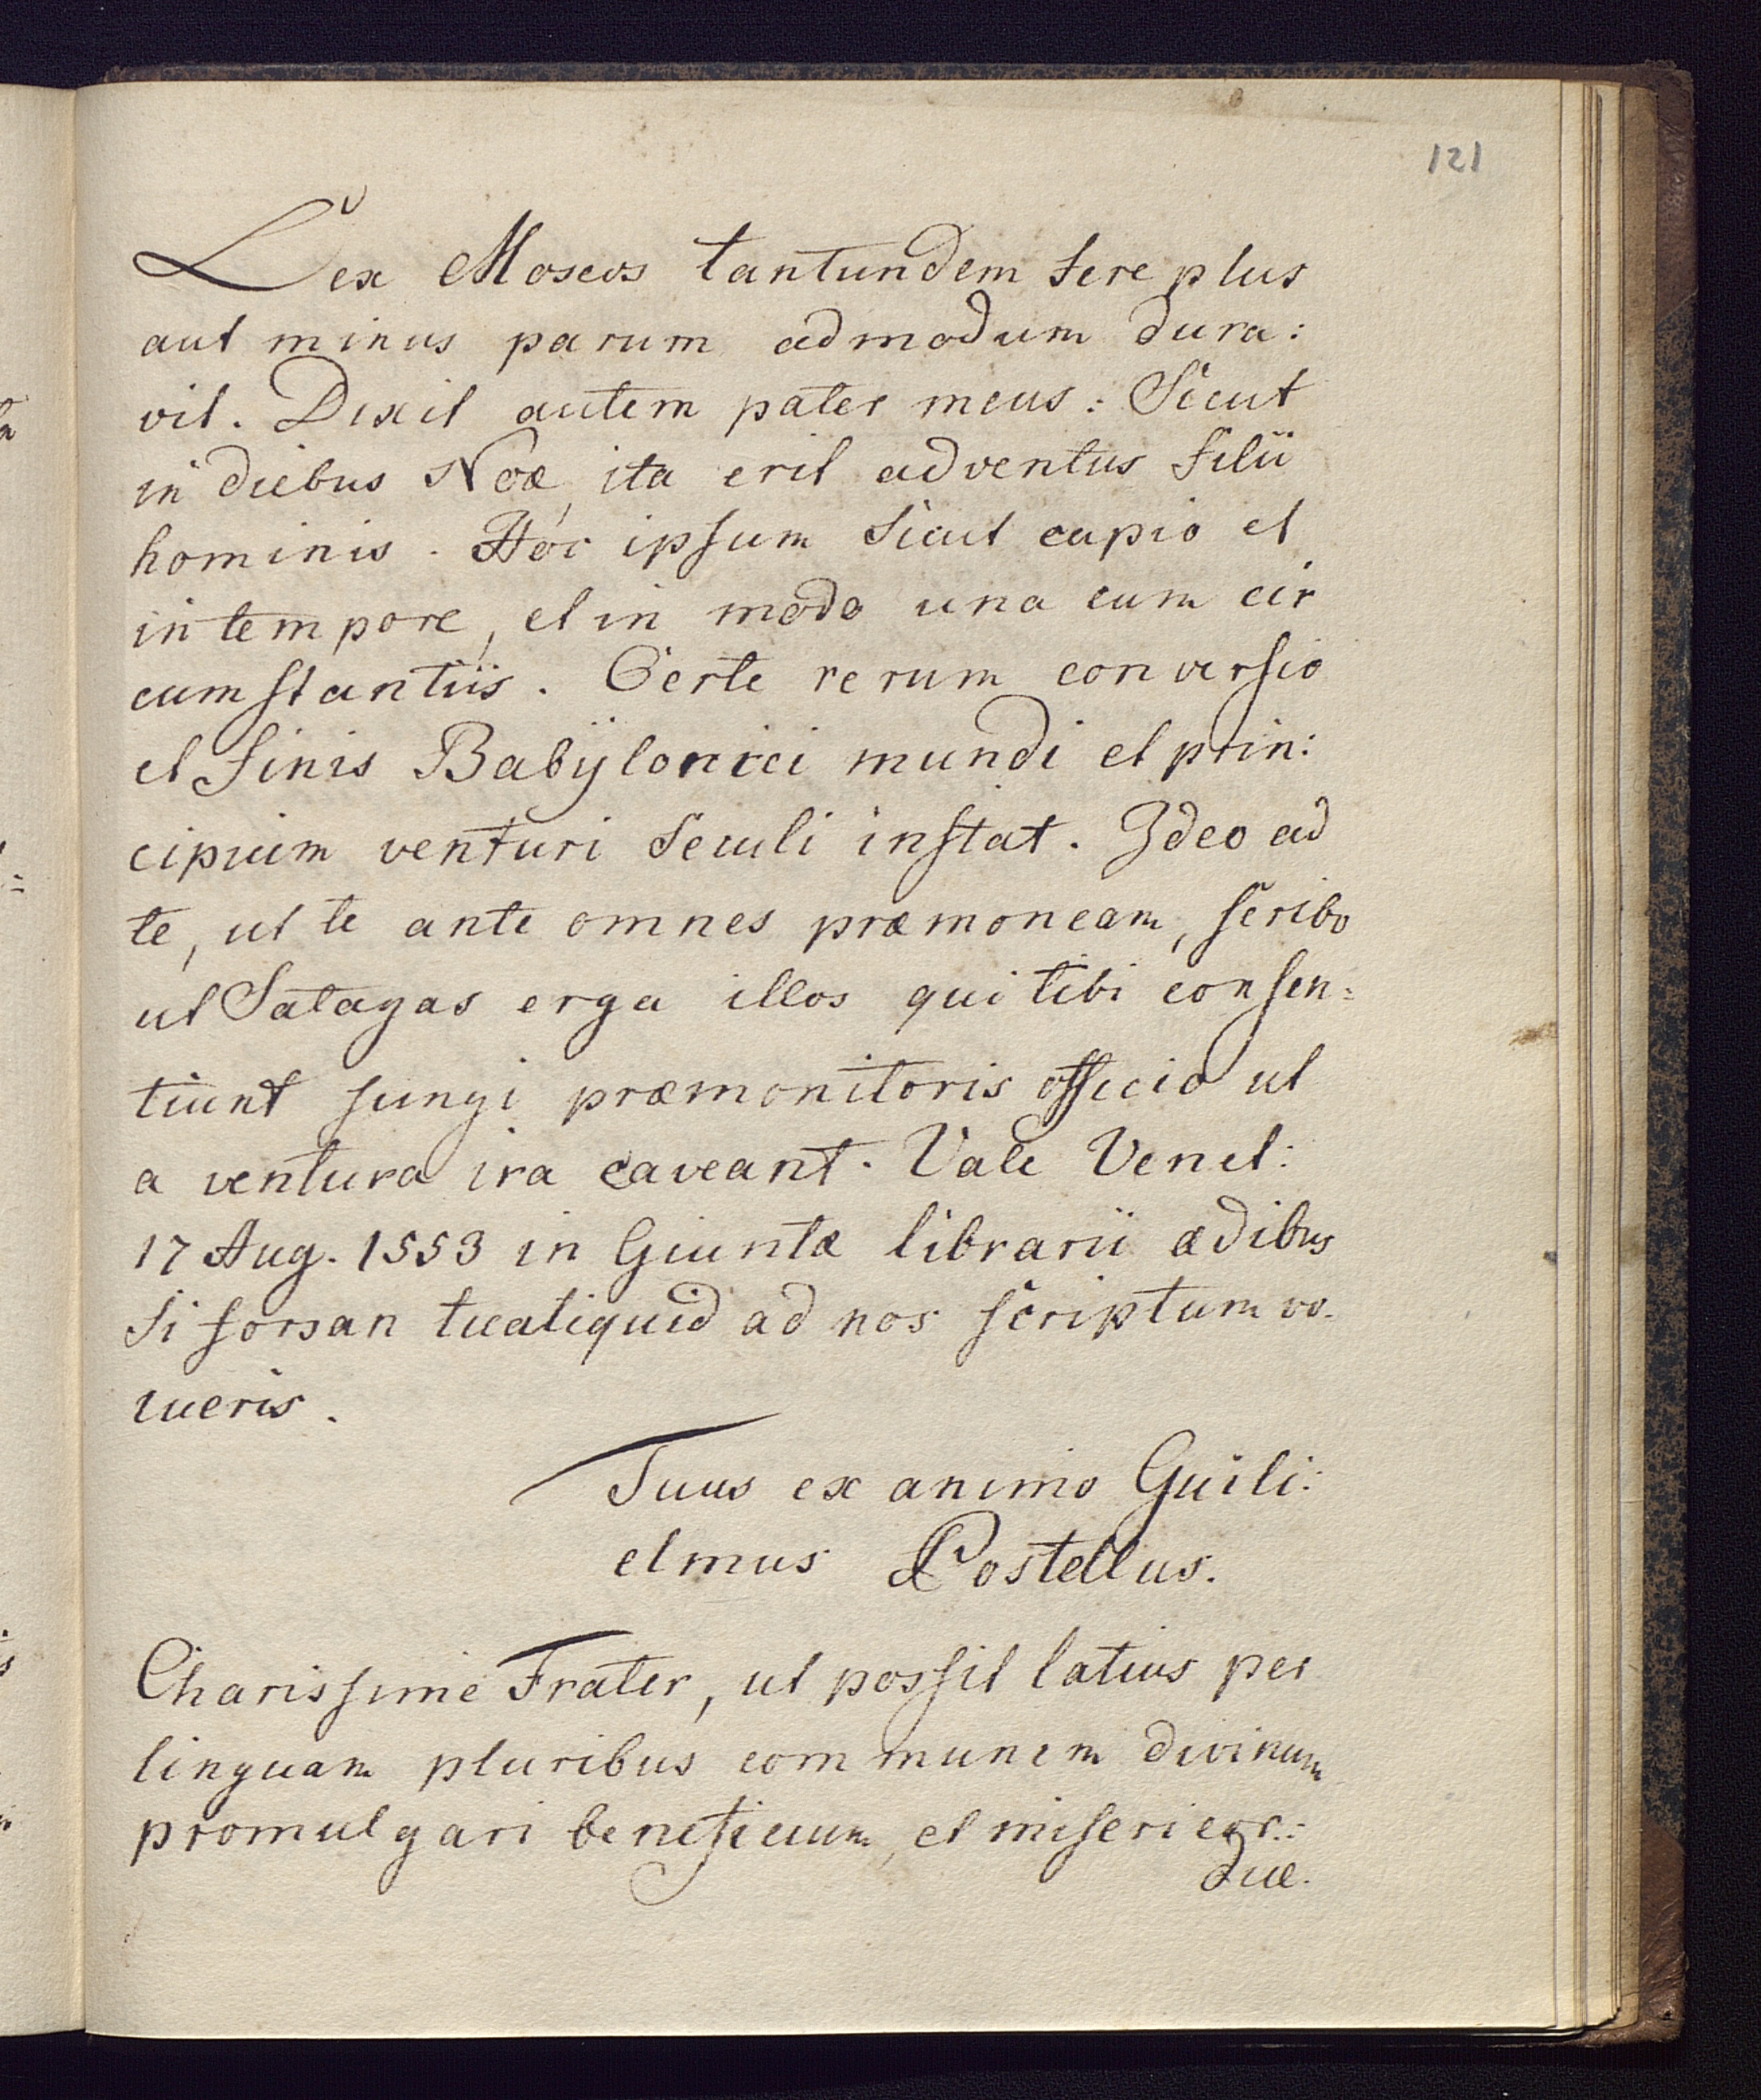 121
Lex Moseos tantundem fere plus
aut minus parum admodum dura:
vit. Dixit autem pater meus: Sicut
in diebus Noæ, ita erit adventus Filii
hominis. Hoc ipsum sicut cupio et
in tempore, et in modo una cum cir
cumstantiis. Certe rerum conversio
et finis Babÿlonici mundi et prin:
cipium venturi Seculi instat. Ideo ad
te, ut te ante omnes præmoneam, scribo
ut Satagas erga illos qui tibi consen=
tiunt fungi præmonitoris officio ut
a ventura ira caveant. Vale Venet:
17 Aug. 1553 in Giuntæ librarii ædibus
Si forsan tu aliquid ad nos scriptum vo-
lueris.
Tuus ex animo Guili:
elmus Postellus.
Charissime Frater, ut possit latius per
linguam pluribus communem divinum
promulgari beneficium, et misericor:
diæ.